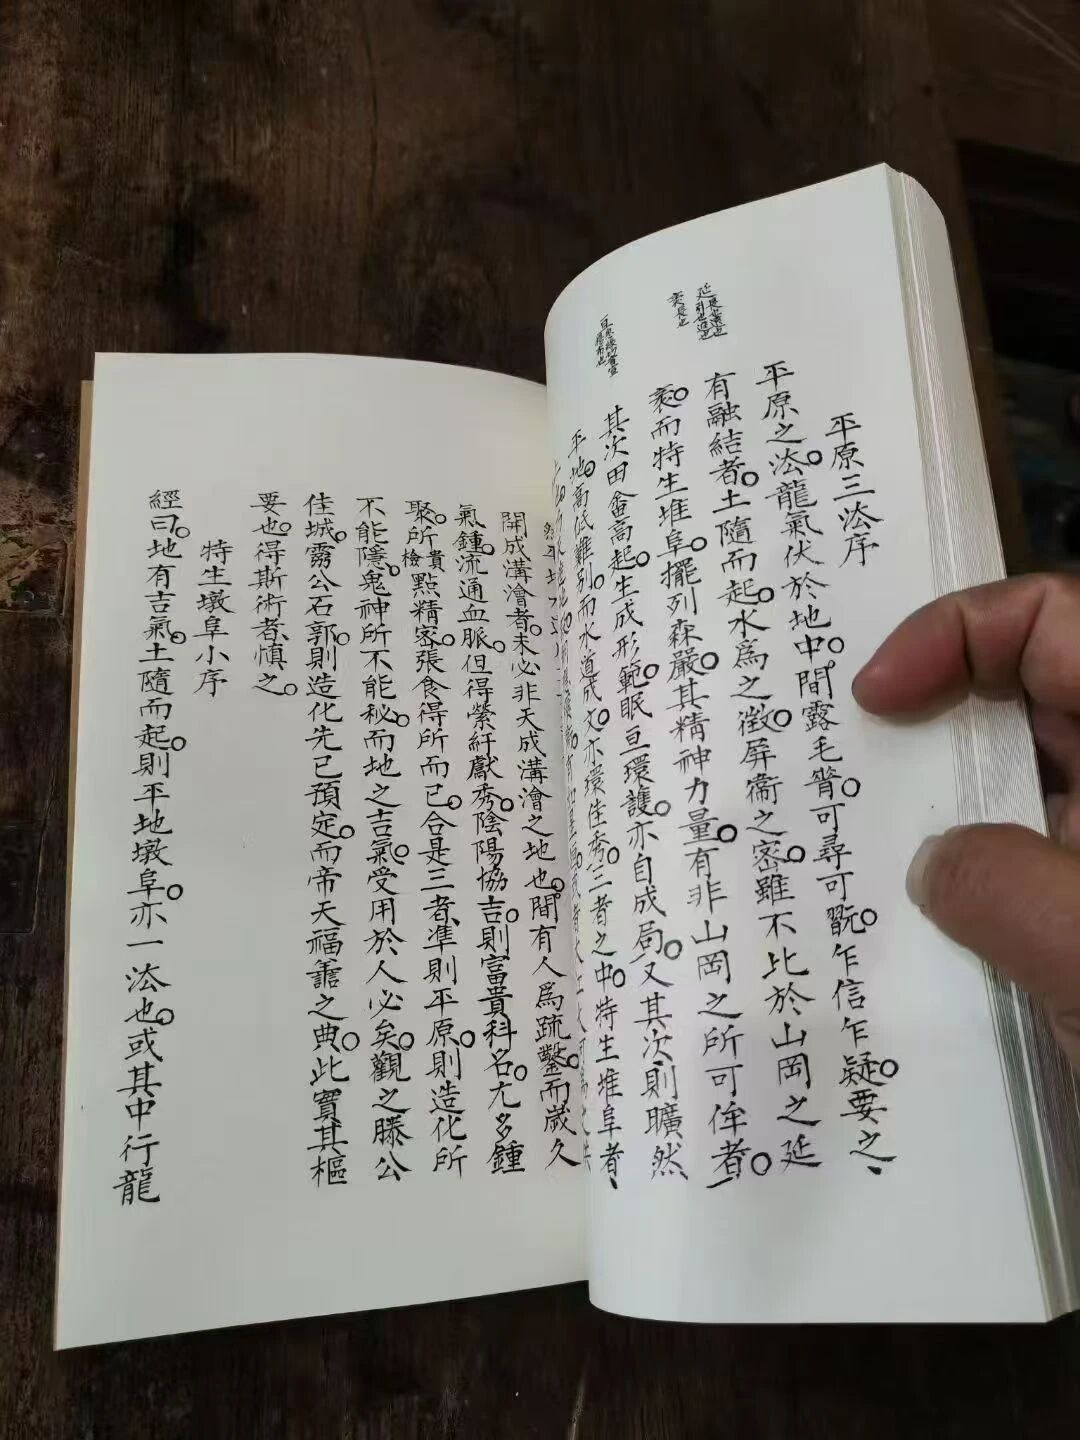 平原三法序
平原之法。龍氣伏於地中。間露毛脊。可尋可翫。乍信乍疑。要之、
有融結者。土隨而起。水爲之徵。屏衞之密。雖不比於山岡之延
袤。而特生堆阜。擺列森嚴。其精神力量。有非山岡之所可侔者。
其次田畲高起。生成形範。眠亘環護。亦自成局。又其次、則曠然
平地。高低難別。而水道成文。亦環佳秀。三者之中。特生堆阜者、
開成溝澮者。未必非天成溝澮之地也。間有人爲疏鑿。而歲久
氣鍾。流通血脈。但得縈紆獻秀。陰陽協吉。則富貴科名。尤多鍾
聚。所貴檢點精密。張食得所而已。合是三者、準則平原。則造化所
不能隱。鬼神所不能秘。而地之吉氣。受用於人必矣。觀之滕公
佳城。霱公石郭。則造化先已預定。而帝天福善之典。此實其樞
要也。得斯術者、慎之。
特生墩阜小序
經曰。地有吉氣。土隨而起。則平地墩阜。亦一法也。或其中行龍